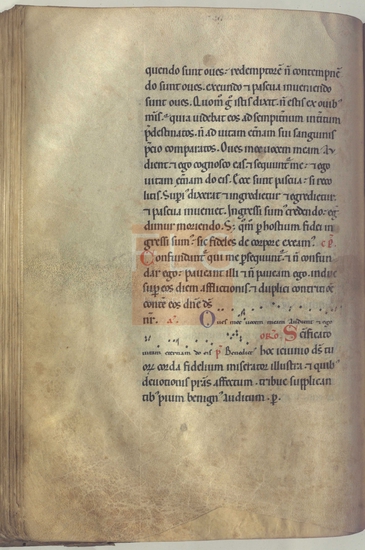 quendo sunt oues. redemptorē ñ contempnē
do sunt oues. exeundo ⁊ pascua inueniendo
sunt oues. Quom̄ g̊ istis dixit. ñ estis ex ouib'
meis. quia uidebat eos ad sempitnum intitum
p̄destinatos. ñ ad uitam etnam sui sanguinis
p̄cio comparatos. Oues mee uocem meam Au
dient. ⁊ ego cognosco eas. ⁊ sequuntur me. ⁊ ego
uitam etnam do eis. Ecce sunt pascua. si reco
litis. Superi' dixerat. ingredietur ⁊ egredietur.
⁊ pascua inueniet. Ingressi sum' credendo. eg
dimur moriendo. S; qm̄ p hostium fidei in
gressi sum'. sic fideles de corpore exeam'. c p̄.
Confundant' qui me p̄sequunt'. ⁊ ñ confun
dar ego. paueant illi ⁊ ñ paueam ego. induc
sup eos diem afflictionis. ⁊ duplici contritione
contē eos dñe ds̄
nr̄. a. Oues mee uocem meam Audiunt ⁊ ego
oro. Scificato
uitam eternam do eis p̄ Benedict' hoc ieiunio ds̄ tu
orum corda fidelium miserator illustra. ⁊ quib'
deuotionis prāstas affectum. tribue supplican
tib' pium benign' auditum. p̄.